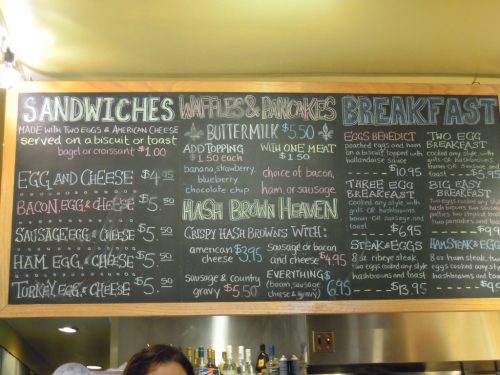 SANDWICHES
MADE WITH TWO EGGS & AMERICAN CHEESE
served on a biscuit or toast
bagel or croissant $1.00
EGG AND CHEESE $4.95
BACON, EGG & CHEESE $5.50
SAUSAGE, EGG & CHEESE $5.50
HAM, EGG & CHEESE $5.50
TURKEY, EGG, & CHEESE $5.50
WAFFLES & PANCAKES
BUTTERMILK $5.50
ADD TOPPING
$1.50 each
banana, strawberry
blueberry
chocolate chip
WITH ONE MEAT
$1.50
choice of bacon,
ham, or sausage
HASH BROWN HEAVEN
CRISPY HASH BROWNS WITH:
american
cheese $3.95
sausage or bacon
and cheese $4.95
sausage & country
gravy $5.50
EVERYTHING
(bacon, sausage
cheese & gravy) $6.95
BREAKFAST
EGGS BENEDICT
poached eggs and ham
on a biscuit, topped with
hollandaise sauce
$10.95
THREE EGG
BREAKFAST
cooked any style with
grits OR hashbrowns
bacon OR sausage, and
toast
$6.95
STEAK & EGGS
8 oz ribeye steak,
two eggs cooked any style
hashbrowns and toast
$13.95
TWO EGG
BREAKFAST
cooked any style with
grits OR hashbrowns
and toast
$5.95
BIG EASY
BREAKFAST
two eggs cooked any style
hashbrowns
HAM STEAK & EGG
8 oz ham steak, two
eggs cooked any style
hashbrowns and toast